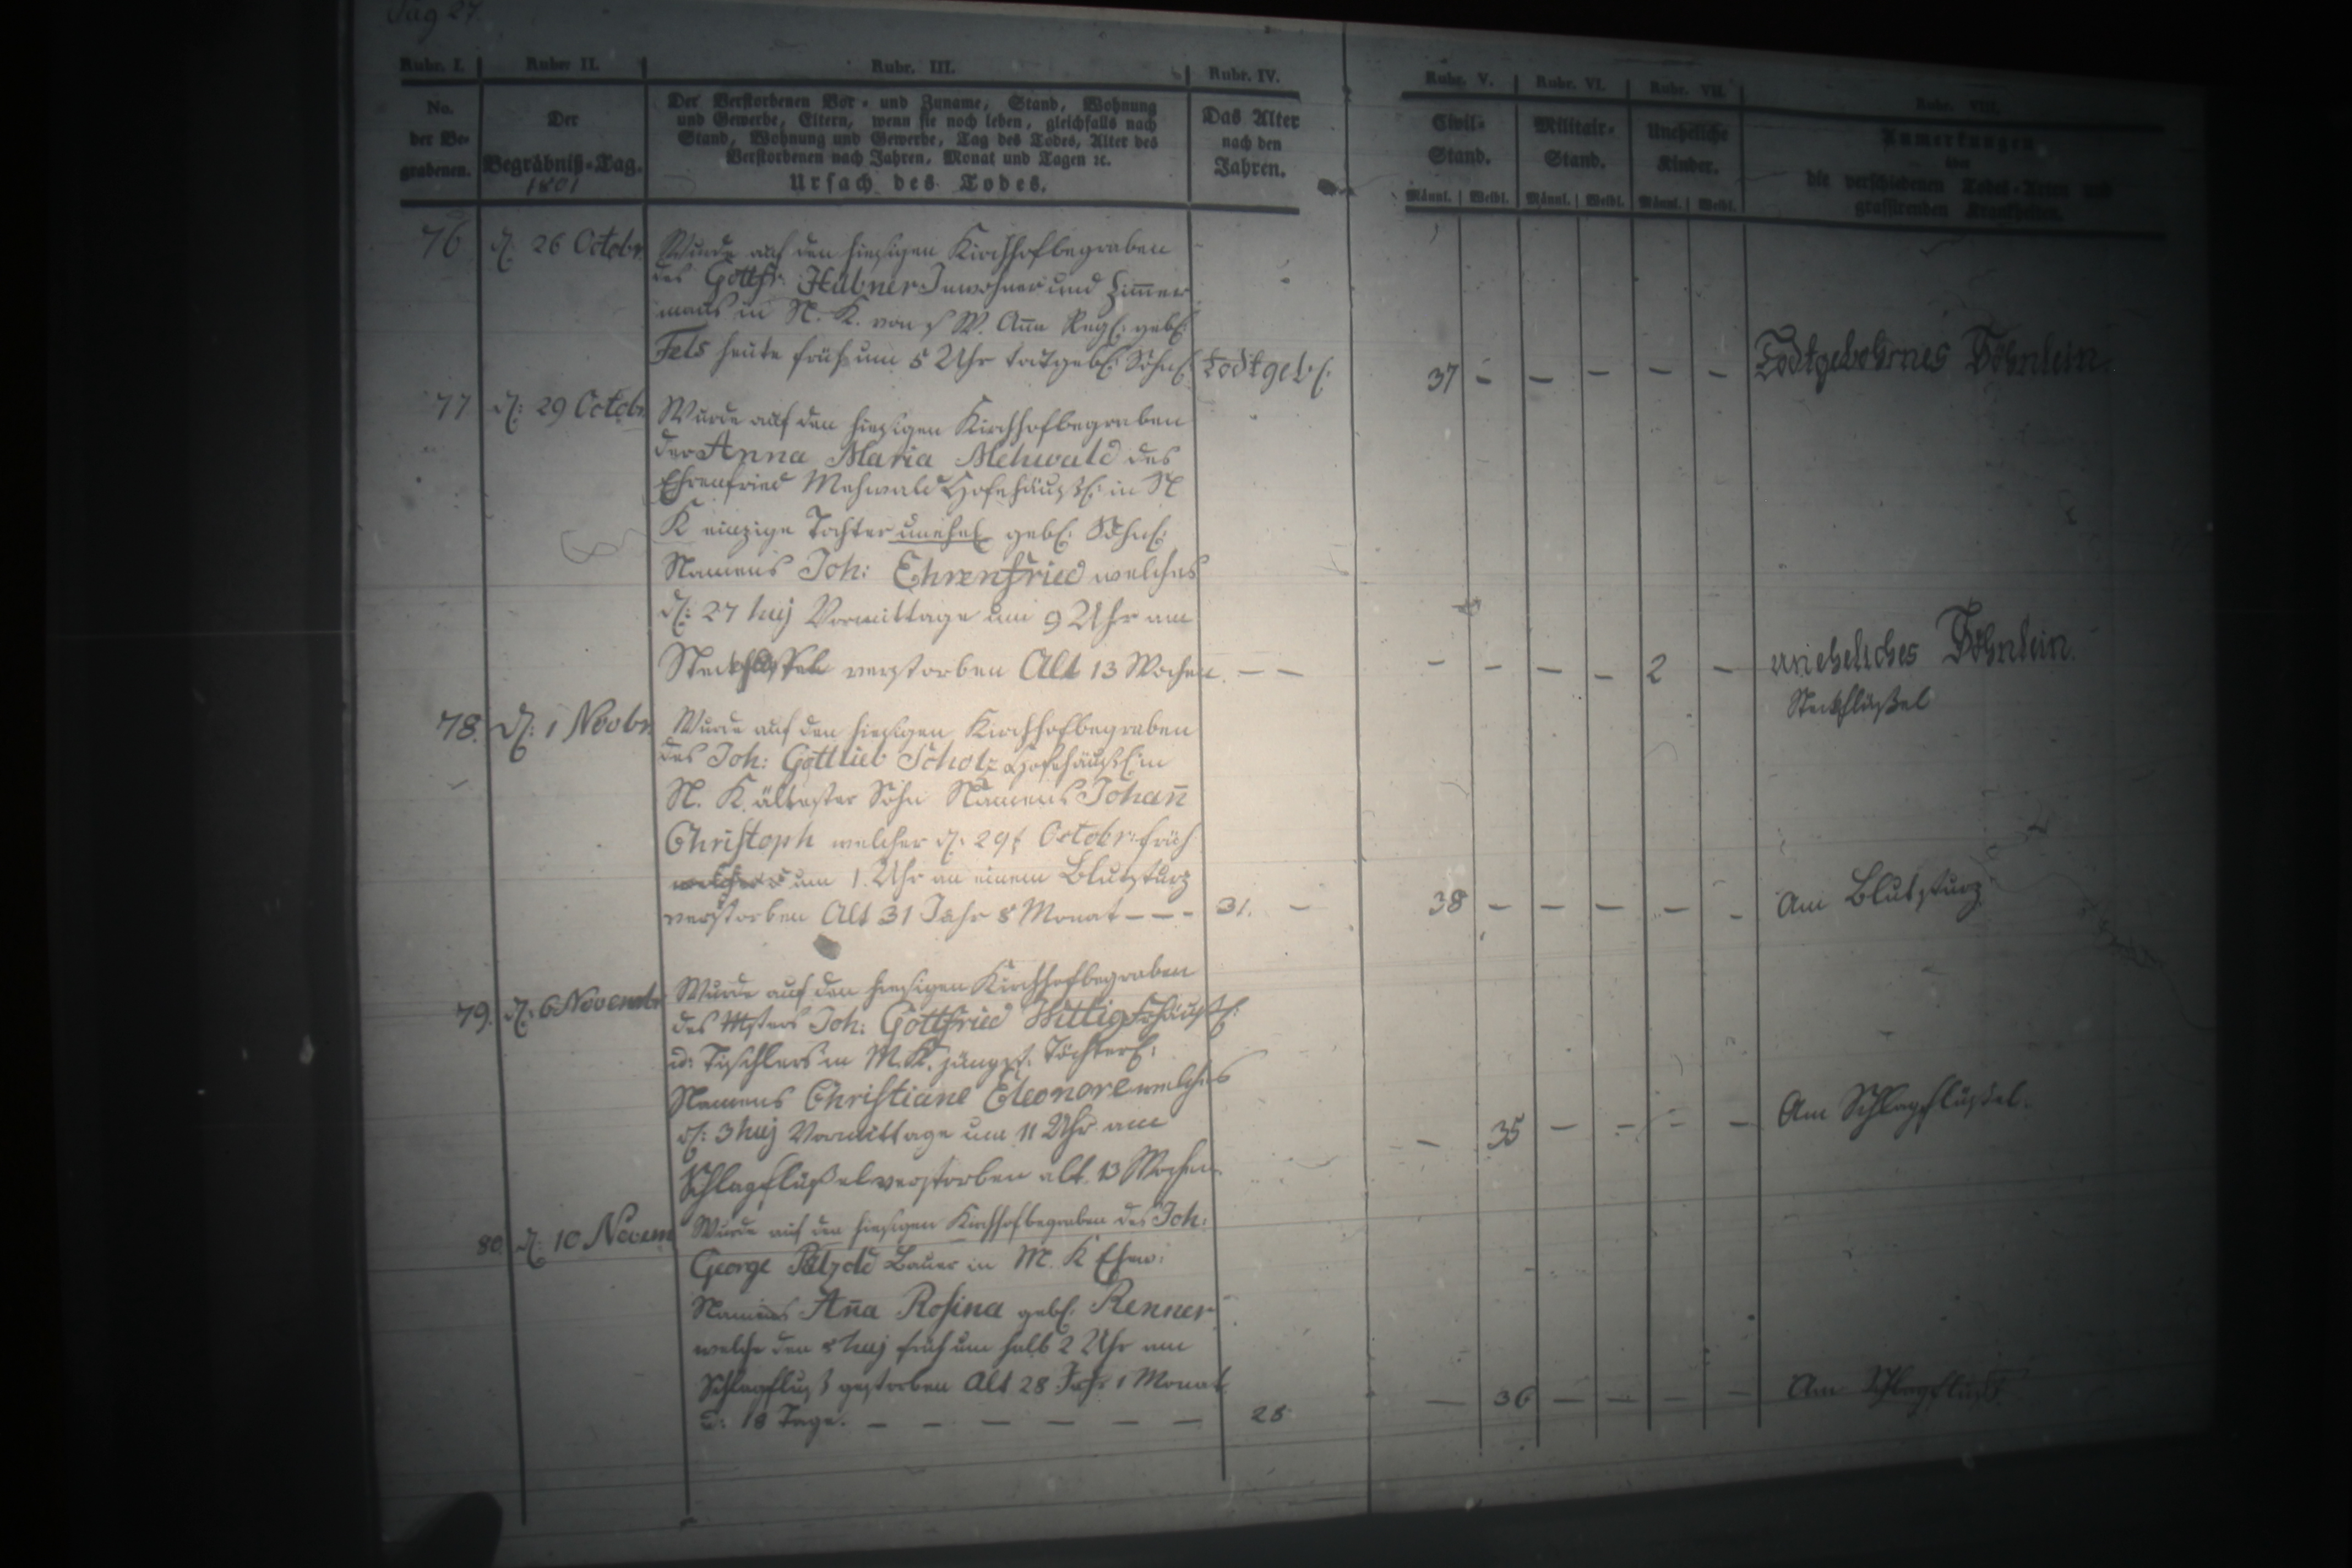 Pag 27.
Rubr. I. Rubr II. Rubr. III. Rubr. IV. Rubr. V. Rubr. VI. Rubr. VII. Rubr. VIII.
No. der Be- grabenen.
Der Begräbniß-Tag.
1801
Der Verstorbenen Vor- und Zuname, Stand, Wohnung
und Gewerbe, Eltern, wenn sie noch leben, gleichfalls nach
Stand, Wohnung und Gewerbe, Tag des Todes, Alter des
Verstorbenen nach Jahren, Monat und Tagen ꝛc.
Ursach des Todes.
Das Alter nach den Jahren.
Civil- Stand.
Militair- Stand.
Uneheliche Kinder.
Anmerkungen über die verschiedenen Todes-Arten und grassirenden Krankheiten.
Männl. Weibl. Männl. Weibl. Männl. Weibl.
76 d. 26 Octobr Wurde auf den hiesigen Kirchhof begraben
des Gottfr. Hübner Inwohner und Zimmer
manns in N. K. von s. W. Anna Reg. geb.
Fels heute früh um 5 Uhr todtgeb. Söhnl. Todtgeb. 37 - - - - - Todtgebohrnes Söhnlein.
77 d. 29 Octobr Wurde auf den hiesigen Kirchhof begraben
der Anna Maria Mehwald des
Ehrenfried Mehwald Hofehäusl. in N
K einzige Tochter unehel. geb. Söhnl.
Namens Joh: Ehrenfried welches
d. 27 huj Vormittage um 9 Uhr am
Steckflüssel verstorben Alt 13 Wochen. - - - - - - 2 - uneheliches Söhnlein.
Steckflüßel
78. d. 1 Novbr. Wurde auf den hiesigen Kirchhof begraben
des Joh: Gottlieb Scholz Hofehäusl. in
N. K. ältester Sohn Namens Johan̄
Christoph welcher d. 29t Octobr: früh
um 1. Uhr an einem Blutsturz
verstorben Alt 31 Jahr 8 Monat - - - 31. - 38 - - - - - Am Blutsturz
79. d. 6 Novembr Wurde auf den hiesigen Kirchhof begraben
des Msters Joh: Gottfried Wittig Frhäusl.
u: Tischlers in M. K. jüngst. Töchterl.
Namens Christiane Eleonore welches
d. 3 huj Vormittage um 11 Uhr am
Schlagflüßel verstorben alt 13 Wochen - 35 - - - - Am Schlagflüßel.
80. d. 10 Novem Wurde auf den hiesigen Kirchhof begraben des Joh:
George Pätzold Bauer in M. K Ehew:
Namens An̄a Rosina geb. Renner
welche den 8 huj früh um halb 2 Uhr am
Schlagfluß gestorben Alt 28 Jahr 1 Monat
u: 18 Tage. - - - - - - 28 - 36 - - - - Am Schlagfluß.